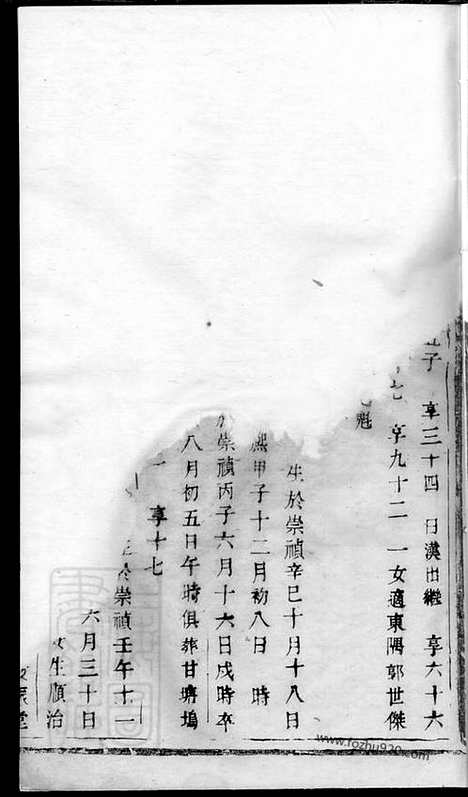 子 享三十四 日漢出繼 享六十六
七 享九十二 一女適東隅郭世傑
魁
生於崇禎辛巳十月十八日
熙甲子十二月初八日 時
於崇禎丙子六月十六日戌時卒
八月初五日午時俱葬甘塘塢
享十七
於崇禎壬午十一
六月三十日
生順治
堂
www.fozhu920.com